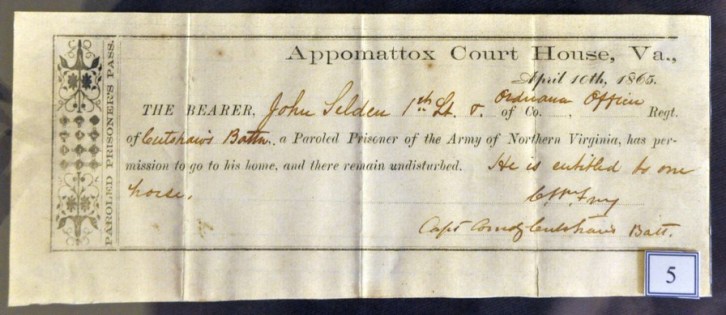 PAROLED PRISONER'S PASS.
Appomattox Court House, Va.,
April 10th, 1865.
THE BEARER, John Selden 1st Lt. & Ordnance Officer of Co. ...., Regt.
of Cutshaw's Battn., a Paroled Prisoner of the Army of Northern Virginia, has per-
mission to go to his home, and there remain undisturbed. He is entitled to one
horse.
Capt Comdg Cutshaw's Batt.
5